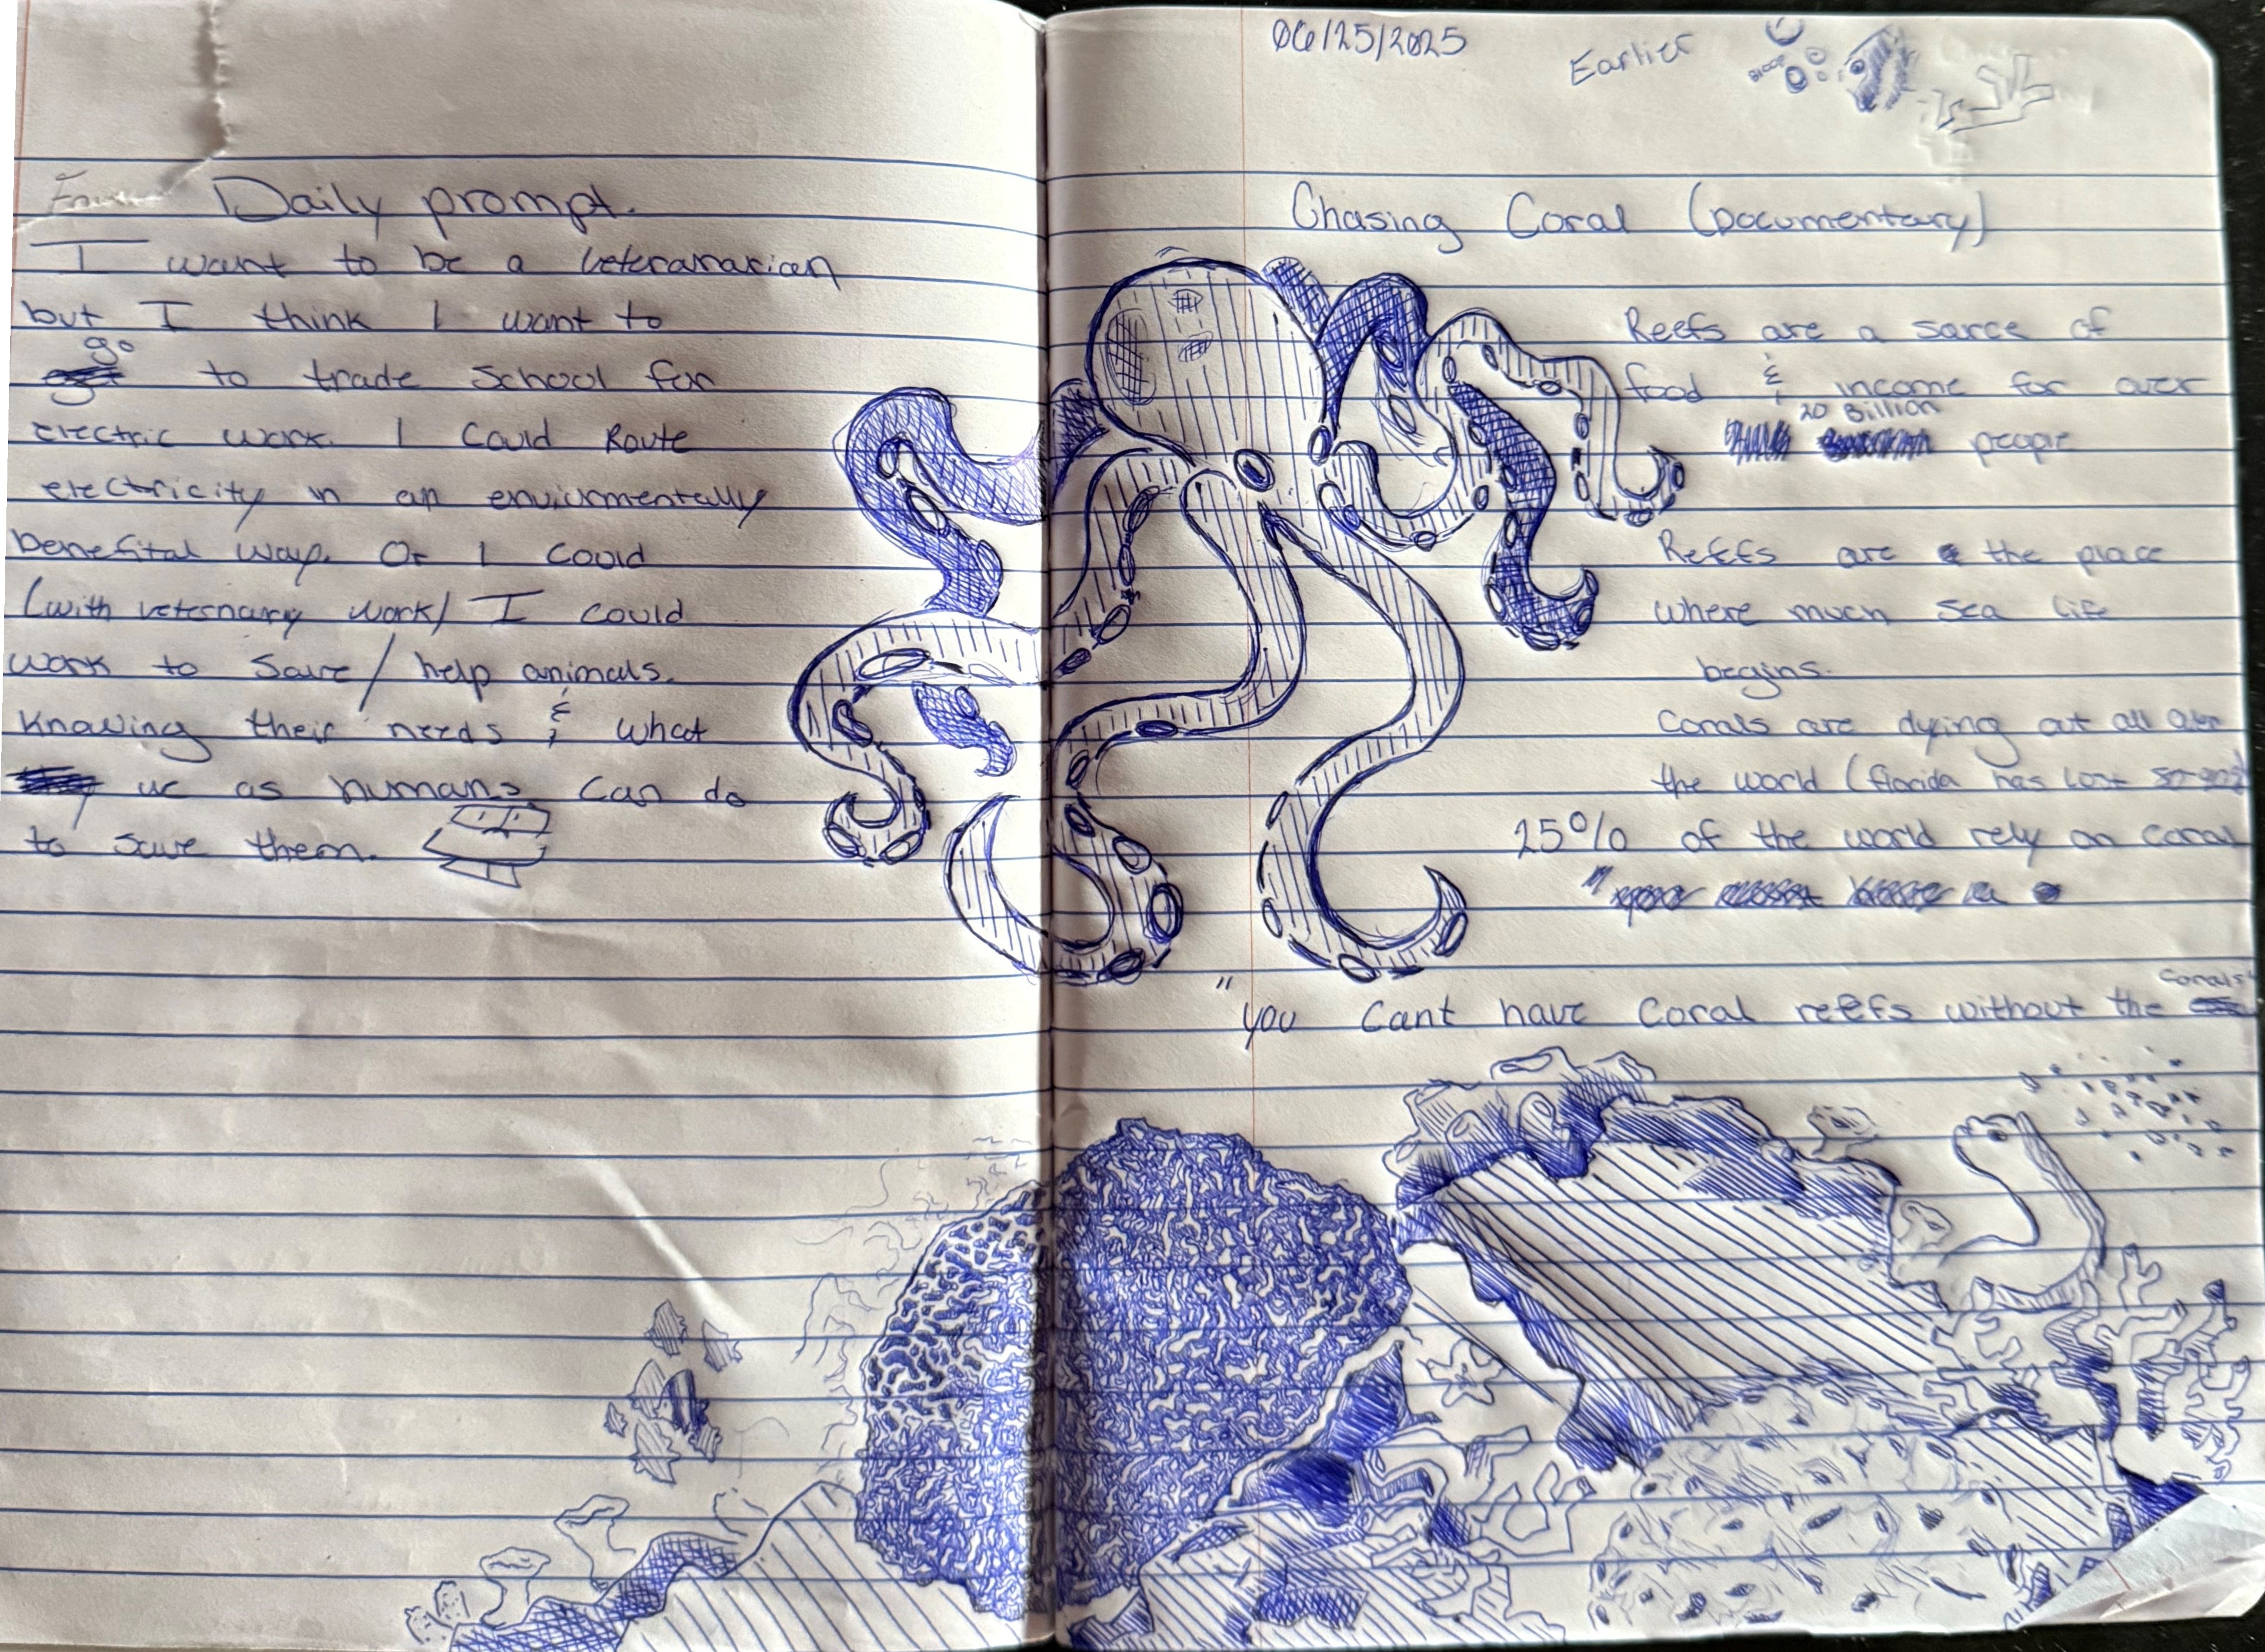 Daily prompt.
I want to be a veteranarian
but I think I want to
go
to trade school for
electric work. I could Route
electricity in an enviormentally
benefital way. Or I could
(with veternary work) I could
work to save/help animals.
knowing their needs & what
we as humans can do
to save them.
06/25/2025
Earlier
Bloop
Chasing Coral (Documentary)
Reefs are a sarce of
food & income for over
20 Billion
people
Reefs are the place
where much sea life
begins.
Corals are dying at all over
the world (florida has lost
25% of the world rely on coral
corals"
"you cant have coral reefs without the